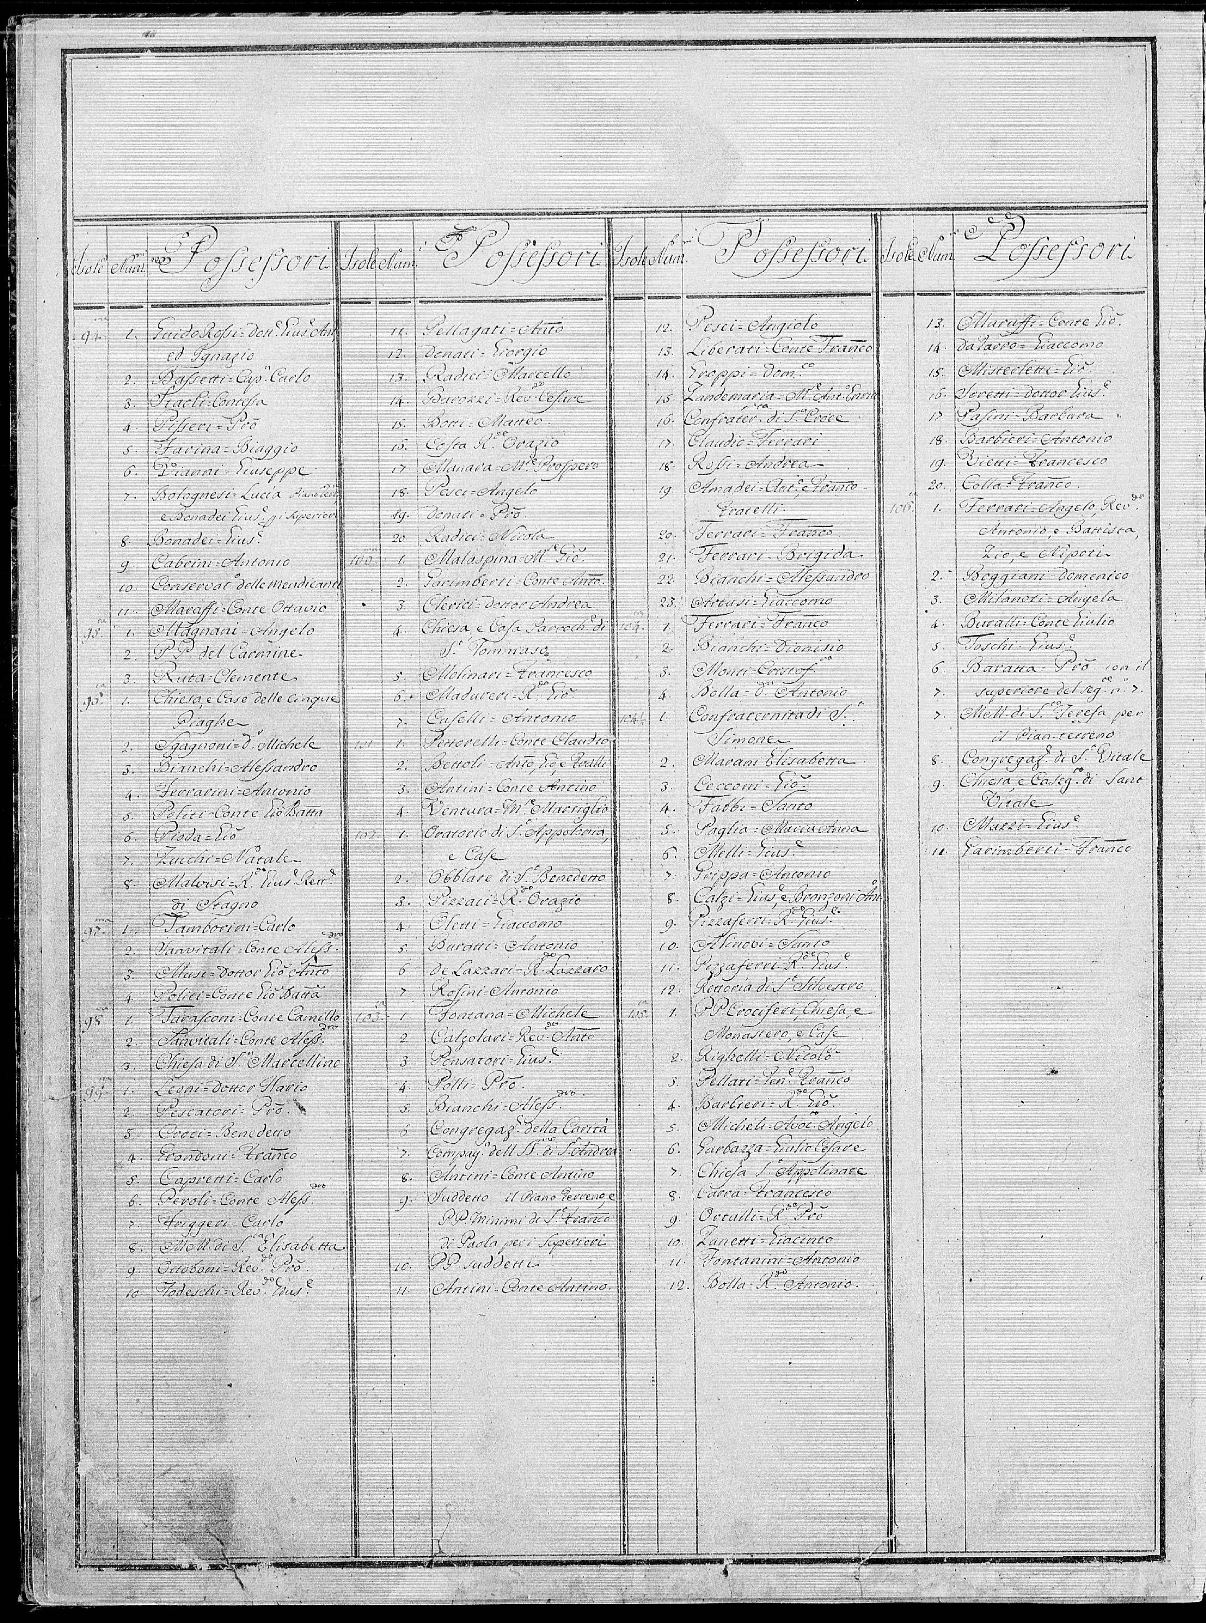 Isole Num. Possessori
94. 1. Guido Rossi = Dott. Gius. Ant.
ed Ignazio
2. Bassetti = Cap. Carlo
3. Contessa
4. Pro
5. Farina = Biaggio
6. Pianni = Giuseppe
7. Bolognesi = Lucia Piano
e Bonadei Gius. gi Superiori
8. Bonadei = Gius.
9. Cabrini = Antonio
10. Conservat. delle Mendicanti
11. Maraffi = Conte Ottavio
95. 1. Magnani = Angelo
2. P.P. del Carmine
3. Ruta = Clemente
96. 1. Chiesa, e Case delle cinque
Piaghe
2. Sgagnoni = D. Michele
3. Bianchi = Alessandro
4. Ferrarini = Antonio
5. Politi = Conte Gio Batta
6. Proda = Gio
7. Zucchi = Natale
8. Malvisi = R.do Gius. Rett.
di Stagno
97. 1. Tamborini = Carlo
2. Sanvitali = Conte Aless.
3. Musi = Dottor Gio Anto
4. Politi = Conte Gio Batta
98. 1. Tarasconi = Conte Camillo
2. Sanvitali = Conte Aless.
3. Chiesa di S. Marcellino
99. 1. Leoni = Dottor Ilario
2. Pescatori = Pro.
3. Croci = Benedetto
4. Grondoni = Franco
5. Capretti = Carlo
6. Pevoli = Conte Aless.
7. Friggeri = Carlo
8. Mon. di S. Elisabetta
9. Ottoboni = Rev. Pro.
10. Todeschi = Rev.do Gius.
Isole Num. Possessori
11. Pellagati = Anto
12. Donati = Giorgio
13. Radici = Marcello
14. Barozzi = Rev.do Cesare
15. Botti = Matteo
16. Costa R.do Orazio
17. Manara = M. Prospero
18. Pesci = Angelo
19. Donati = Pro
20. Radici = Nicola
100. 1. Malaspina = M. Gio.
2. Garimberti = Conte Anto.
3. Clerici = Dottor Andrea
4. Chiesa, e Casa Parroch. di
S. Tommaso
5. Molinari = Francesco
6. Madureri = R.do Gio
7. Caselli = Antonio
101. 1. Pettorelli = Conte Claudio
2. Bettoli = Anto, Gio, e Fratelli
3. Antini = Conte Antino
4. Ventura = M. Maoriglio
102. 1. Oratorio di S. Appolonia,
e Case
2. Obblate di S. Benedetto
3. Pizzati = R.do Orazio
4. Oletti = Giaccomo
5. Buratti = Antonio
6. De Lazzari = R.do Lazzaro
7. Rosini = Antonio
103. 1. Fontana = Michele
2. Calzolari = Rev.do Anto
3. Pensatori = Gius.
4. Potti = Pro.
5. Bianchi = Aless.
6. Congregaz. della Carità
7. Compag. dell SS. di S. Andrea
8. Antini = Conte Antino
9. Suddetto il Piano Terreno, e
P.P. Minimi di S. Franco
di Paola per i Superiori
10. P.P. Suddetti
11. Antini = Conte Antino.
Isole Num. Possessori
12. Pesci = Angiolo
13. Liberati = Conte Franco
14. Troppi = Dom.co
15. Landemaria = M. Ant. Enric.
16. Confrater. di S. Croce
17. Claudio = Ferrari
18. Rossi = Andrea
19. Amadei = Ant. e Franco
Fratelli.
20. Ferrari = Franco
21. Ferrari = Brigida
22. Bianchi = Alessandro
23. Artusi = Giaccomo
104. 1. Ferrari = Franco
2. Bianchi = Dionisio
3. Monti = Cristof.
4. Bolla = D. Antonio
104½ 1. Confraternita di S.
Simone
2. Marani Elisabetta
3. Cecconi = Gio.
4. Fabbi = Santo
5. Paglia = Maria Anna
6. Melli = Gius.
7. Grippa = Antonio
8. Calzi = Gius., e Bronzoni Ant.
9. Pizzaferri = R.do Gius.
10. Alinovi = Santo
11. Pizzaferri = R.do Gius.
12. Rettoria di S. Silvestro
105. 1. P.P. Crociferi, Chiesa, e
Monastero, e Case
2. Righetti = Nicolò
3. Pellari = Ten. Franco
4. Barbieri = R.do Gio.
5. Micheli = Avoc. Angelo
6. Garbazza = Giulio Cesare
7. Chiesa S. Appolinare
8. Carra = Francesco
9. Orcalli = R.do Pro
10. Zanetti = Giacinto
11. Fontanini = Antonio
12. Bolla = R.do Antonio
Isole Num. Possessori
13. Maruffi = Conte Gio.
14. Dallaoro = Giaccomo
15. Misteeletti = Gio.
16. Ioretti = Dottor Gius.
17. Pasini = Barbara
18. Barbieri = Antonio
19. Bietti = Francesco
20. Colla = Franco.
106. 1. Ferrari = Angelo Rev.do
Antonio, e Battista,
Zio, e Nipoti
2. Boggiani = Domenico
3. Milanoti = Angela
4. Buralli = Conte Giulio
5. Toschi = Gius.
6. Baratta = Pro con il
7. superiore del seg. n. 7.
7. Mon. di S. Teresa per
il Pian-terreno
8. Congregaz. di S. Vitale
9. Chiesa, e Caseg. di Sant
Vitale
10. Mazzi = Gius.
11. Garimberti = Franco